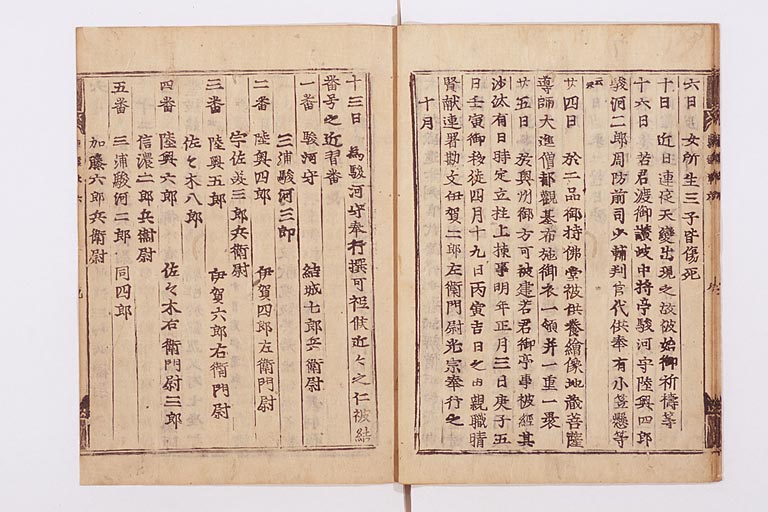 六日 女所生三子皆傷死
十日 近日連夜天變出現之波始御祈禱等
十六日 若君渡御讃岐中将亭駿河守陸奥四郎
駿河二郎周防前司少輔判官代供奉有小笠懸等
云々
廿四日 於二品御持佛堂被供養繪像地藏菩薩
導師大進僧都觀基布施御衣一領并一重一裹
廿五日 於奥州御方可被建若君御亭事被經其
沙汰有日時定立柱上棟事明年正月三日庚子五
日壬寅御移徙四月十九日丙寅吉日之由親職晴
賢献連署勘文伊賀二郎左衛門尉光宗奉行之
十月
十三日 爲駿河守奉行撰可祗候近々之仁被結
番号之近習番
一番 駿河守 結城七郎兵衛尉
三浦駿河三郎
二番 陸奥四郎 伊賀四郎左衛門尉
宇佐美三郎兵衛尉
三番 陸奥五郎 伊賀六郎右衛門尉
佐々木八郎
四番 陸奥六郎 佐々木右衛門尉三郎
信濃二郎兵衛尉
五番 三浦駿河二郎 同四郎
加藤六郎兵衛尉